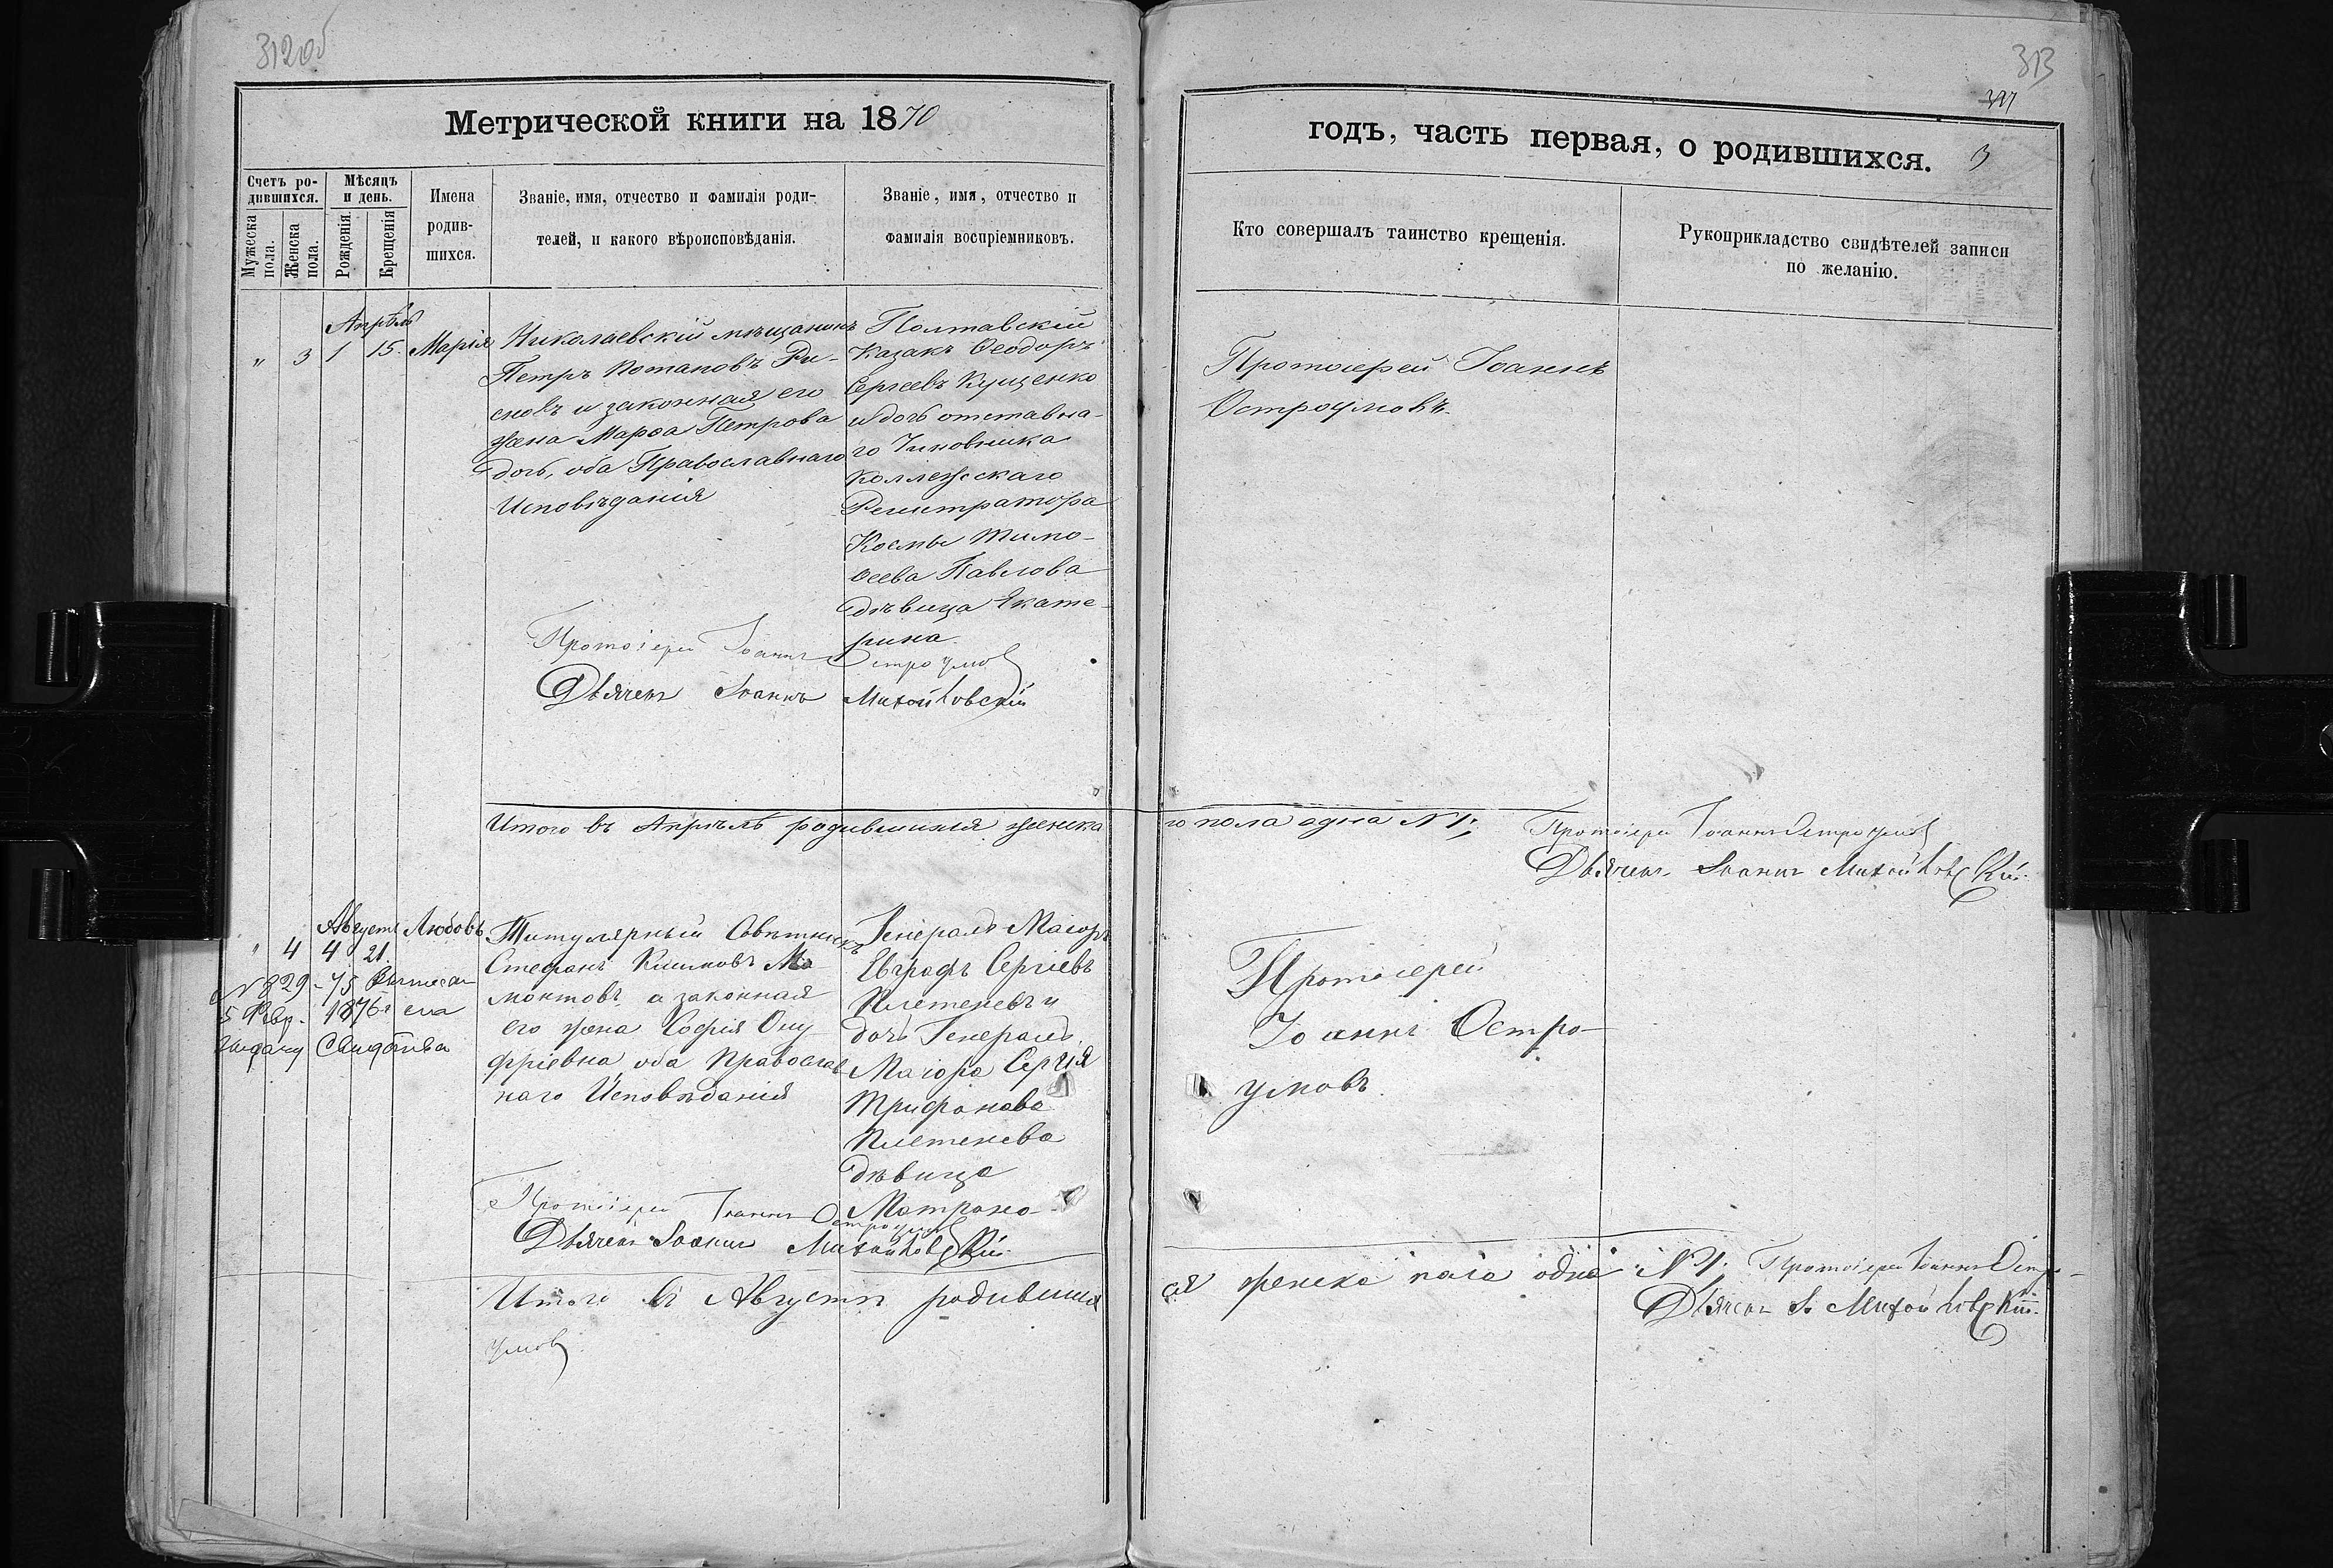 312об
Метрической книги на 1870
Счетъ ро-
дившихся.
Мѣсяцъ
и день.
Мужеска
пола.
Женска
пола.
Рожденія.
Крещенія
Имена
родив-
шихся.
Званіе, имя, отчество и фамилія роди-
телей, и какого вѣроисповѣданія.
Званіе, имя, отчество и
фамилія воспріемниковъ.
Апрѣль
" 3 1 15. Марія
Николаевскій мѣщанинъ
Петръ Потаповъ
и законная его
жена Марѳа Петрова
дочь, оба Православнаго
Исповѣданія
Полтавскій
Казакъ Ѳеодоръ
Сергеевъ Кущенко
и дочь отставна-
го Чиновника
Коллежскаго
Регистратора
Космы Тимо-
ѳеева Павлова
дѣвица Екате-
рина.
Протоіерей Іоаннъ Остроумовъ
Дьячекъ Іоаннъ Михойловскій
Итого въ Апрѣлѣ родившихся женска
Августъ
" 4 4 21. Любовь
Титулярный Совѣтникъ
Стефанъ Климовъ Ма
монтовъ а законная
его жена Софія Ону
фріевна оба Православ
наго Исповѣданія
Генералъ Маіоръ
Евграфъ Сергіевъ
Плетеневъ и
дочь Генералъ
Маіора Сергія
Трифонова
Плетенева
дѣвица
Матрона
№ 829 - 75
5 Февр. 1876 г
выдачи Свидѣтва
Протоіерей Іоаннъ Остроумовъ
Дьячекъ Іоаннъ Михойловскій
Итого въ Августѣ родивших
умовъ
313
годъ, часть первая, о родившихся. 3
Кто совершалъ таинство крещенія.
Рукоприкладство свидѣтелей записи
по желанію.
Протоіерей Іоаннъ
Остроумовъ.
го пола одна № 1; Протоіерей Іоаннъ Остроумовъ
Дьячекъ Іоаннъ Михойловскій.
Протоіерей
Іоаннъ Остро-
умовъ.
ся женска пола одна № 1; Протоіерей Іоаннъ Остро-
Дьячекъ Іо Михойловскій.